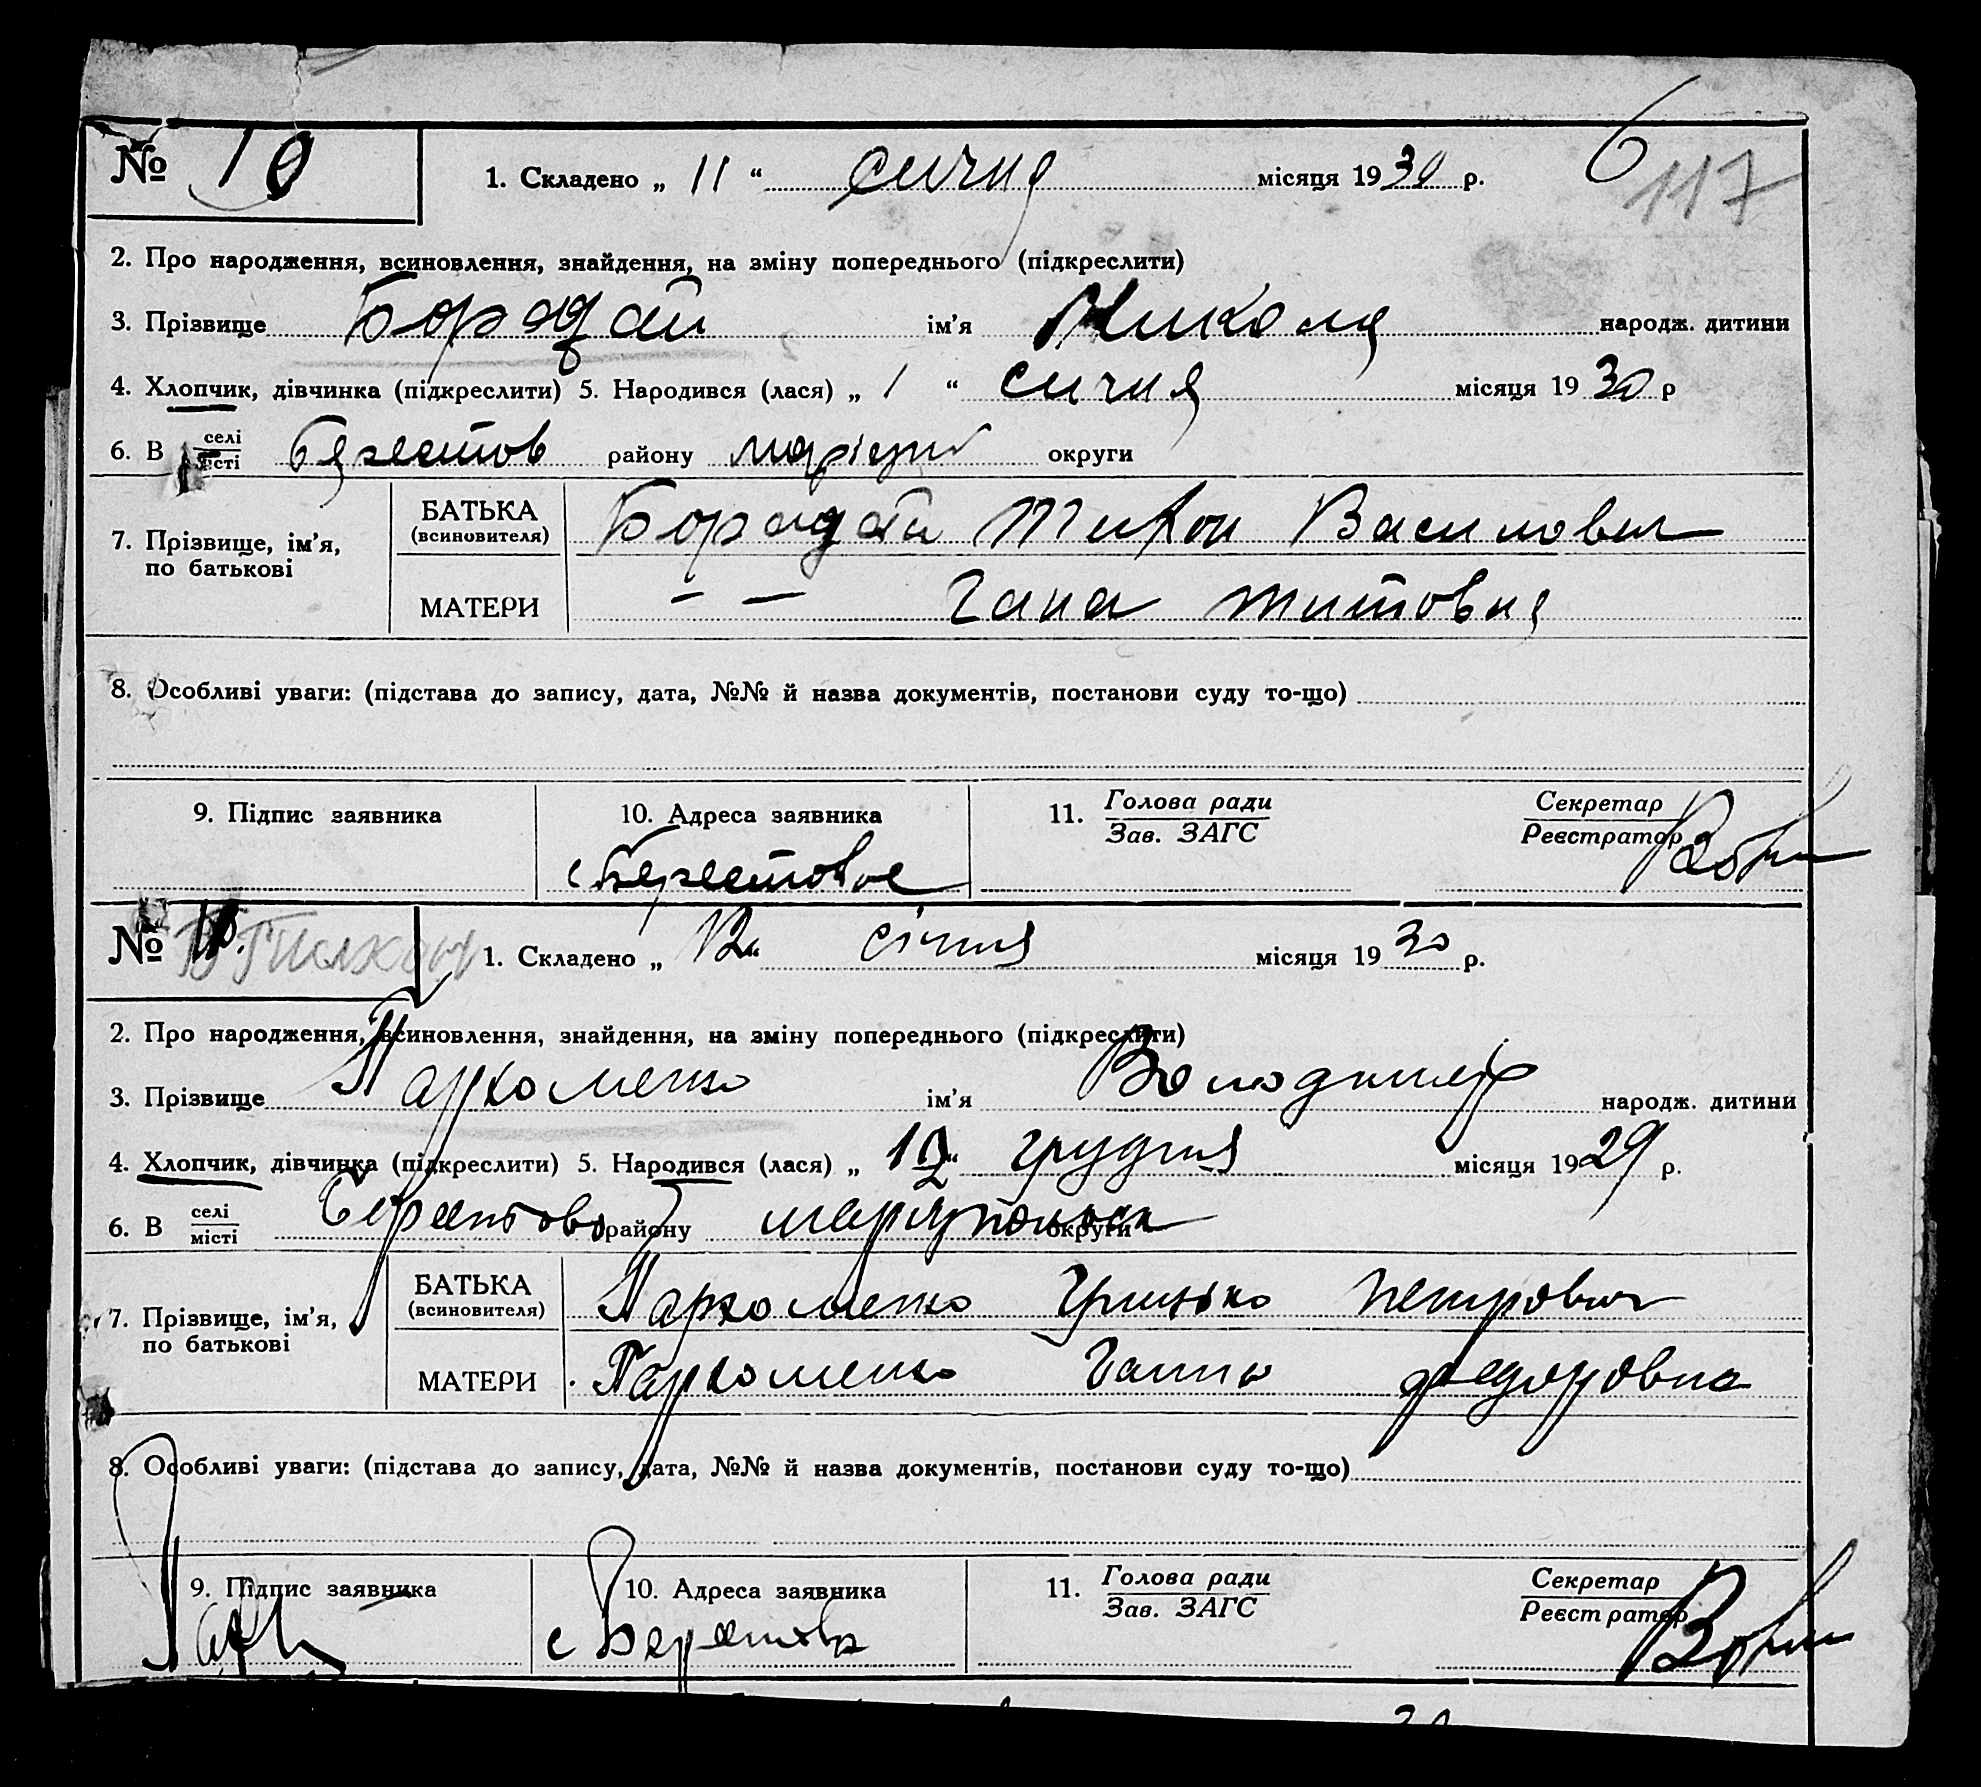 6
117
№ 10 1. Складено „ 11 “ сични місяця 1930 р.
2. Про народження, всиновлення, знайдення, на зміну попереднього (підкреслити)
3. Прізвище Борадай ім’я Микола народж. дитини
4. Хлопчик, дівчинка (підкреслити) 5. Народився (лася) „ 1 “ сични місяця 1930 р
6. В селі місті Берестов району округи
7. Прізвище, ім’я, по батькові БАТЬКА (всиновителя) Борадай Тихон Василович
МАТЕРИ – – Гана Титовна
8. Особливі уваги: (підстава до запису, дата, №№ й назва документів, постанови суду то-що)
9. Підпис заявника 10. Адреса заявника 11. Голова ради Зав. ЗАГС Секретар Реєстратор
с Берестовое
№ 1. Складено „ 12 “ січня місяця 1930 р.
2. Про народження, всиновлення, знайдення, на зміну попереднього (підкреслити)
3. Прізвище Пархоменко ім’я Володимир народж. дитини
4. Хлопчик, дівчинка (підкреслити) 5. Народився (лася) „ “ грудня місяця 1929 р.
6. В селі місті Берестово району округи
7. Прізвище, ім’я, по батькові БАТЬКА (всиновителя) Пархоменко Грицько Петрович
МАТЕРИ Пархоменко Ганна Федоровна
8. Особливі уваги: (підстава до запису, дата, №№ й назва документів, постанови суду то-що)
9. Підпис заявника 10. Адреса заявника 11. Голова ради Зав. ЗАГС Секретар Реєстратор
с Берестове